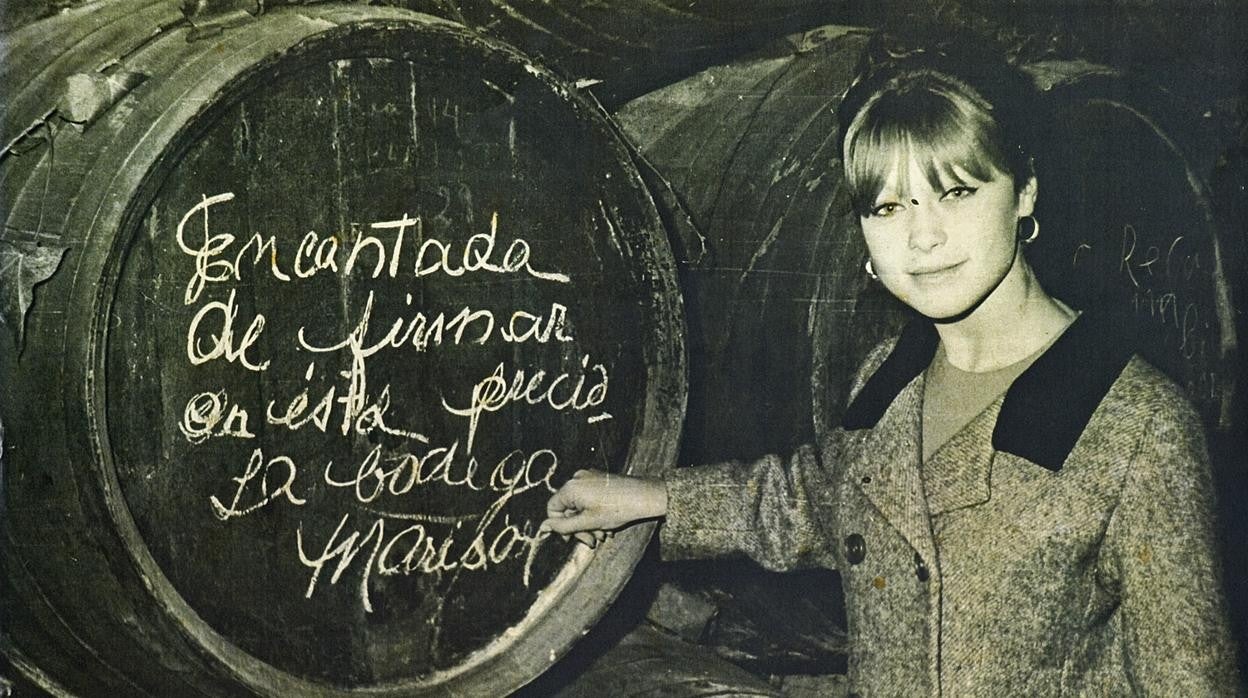 Encantada
de firmar
en ésta precio
sa bodega
Marisol